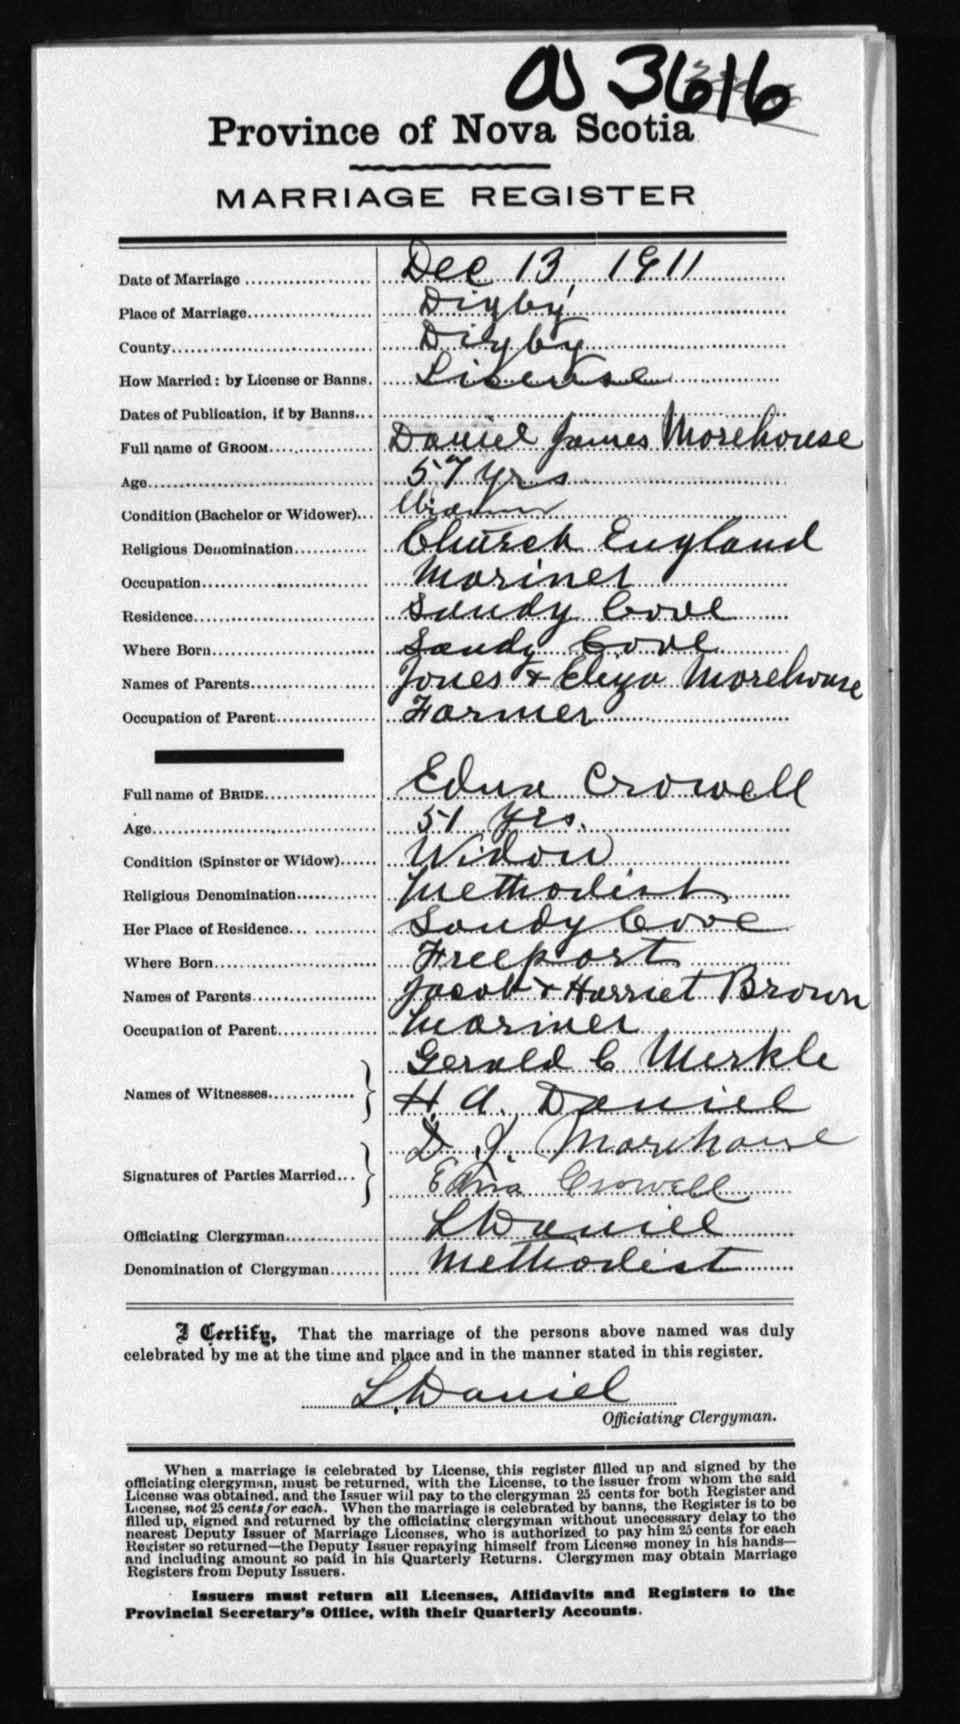 W 3616
Province of Nova Scotia
MARRIAGE REGISTER
Date of Marriage Dec 13, 1911
Place of Marriage Digby
County Digby
How Married: by License or Banns. License
Dates of Publication, if by Banns
Full name of GROOM Daniel James Morehouse
Age 57 yrs
Condition (Bachelor or Widower) Widower
Religious Denomination Church England
Occupation Mariner
Residence Sandy Cove
Where Born Sandy Cove
Names of Parents Jones & Eliza Morehouse
Occupation of Parent Farmer
Full name of BRIDE Edna Crowell
Age 51 Yrs.
Condition (Spinster or Widow) Widow
Religious Denomination Methodist
Her Place of Residence Sandy Cove
Where Born Freeport
Names of Parents Jacob & Harriet Brown
Occupation of Parent Mariner
Names of Witnesses Gerald C Merkle
H. A. Daniel
Signatures of Parties Married D. J. Morehouse
Edna Crowell
Officiating Clergyman L Daniel
Denomination of Clergyman Methodist
I Certify, That the marriage of the persons above named was duly
celebrated by me at the time and place and in the manner stated in this register.
L Daniel
Officiating Clergyman.
When a marriage is celebrated by License, this register filled up and signed by the
officiating clergyman, must be returned, with the License, to the issuer from whom the said
License was obtained, and the Issuer will pay to the clergyman 25 cents for both Register and
License, not 25 cents for each. When the marriage is celebrated by banns, the Register is to be
filled up, signed and returned by the officiating clergyman without unnecessary delay to the
nearest Deputy Issuer of Marriage Licenses, who is authorized to pay him 25 cents for each
Register so returned—the Deputy Issuer repaying himself from License money in his hands—
and including amount so paid in his Quarterly Returns. Clergymen may obtain Marriage
Registers from Deputy Issuers.
Issuers must return all Licenses, Affidavits and Registers to the
Provincial Secretary's Office, with their Quarterly Accounts.